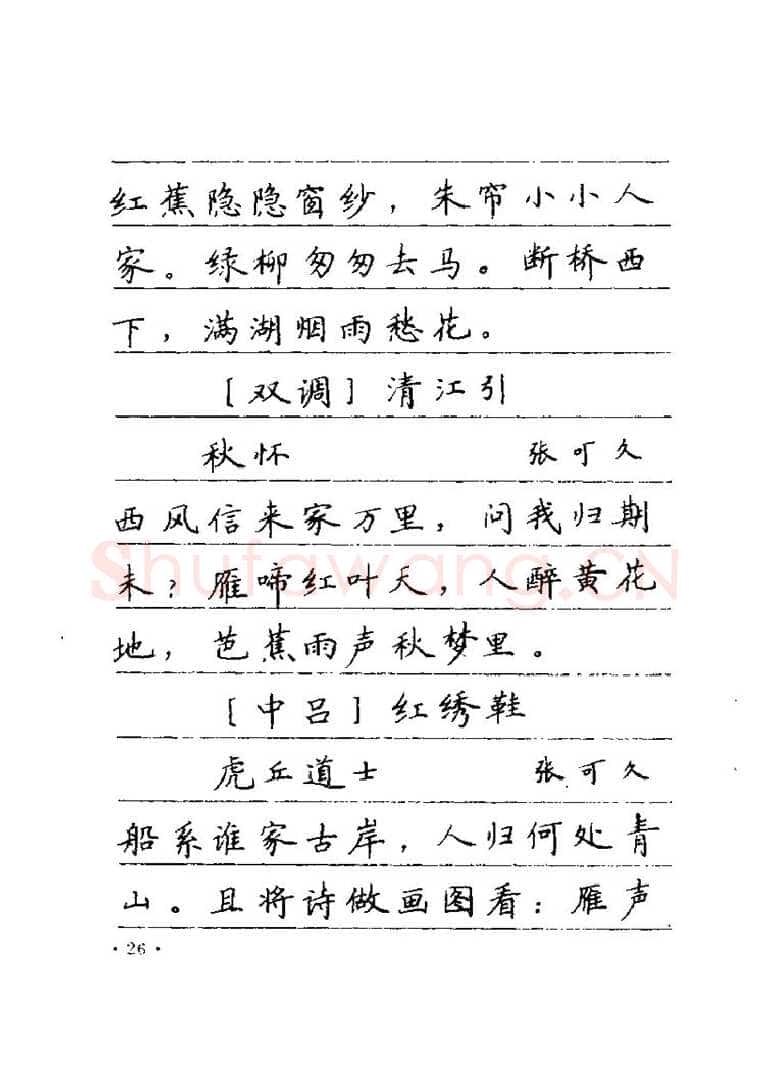 红蕉隐隐窗纱，朱帘小小人
家。绿柳匆匆去马。断桥西
下，满湖烟雨愁花。
［双调］清江引
秋怀 张可久
西风信来家万里，问我归期
未？雁啼红叶天，人醉黄花
地，芭蕉雨声秋梦里。
［中吕］红绣鞋
虎丘道士 张可久
船系谁家古岸，人归何处青
山。且将诗做画图看：雁声
·26·
Shufawang.CN